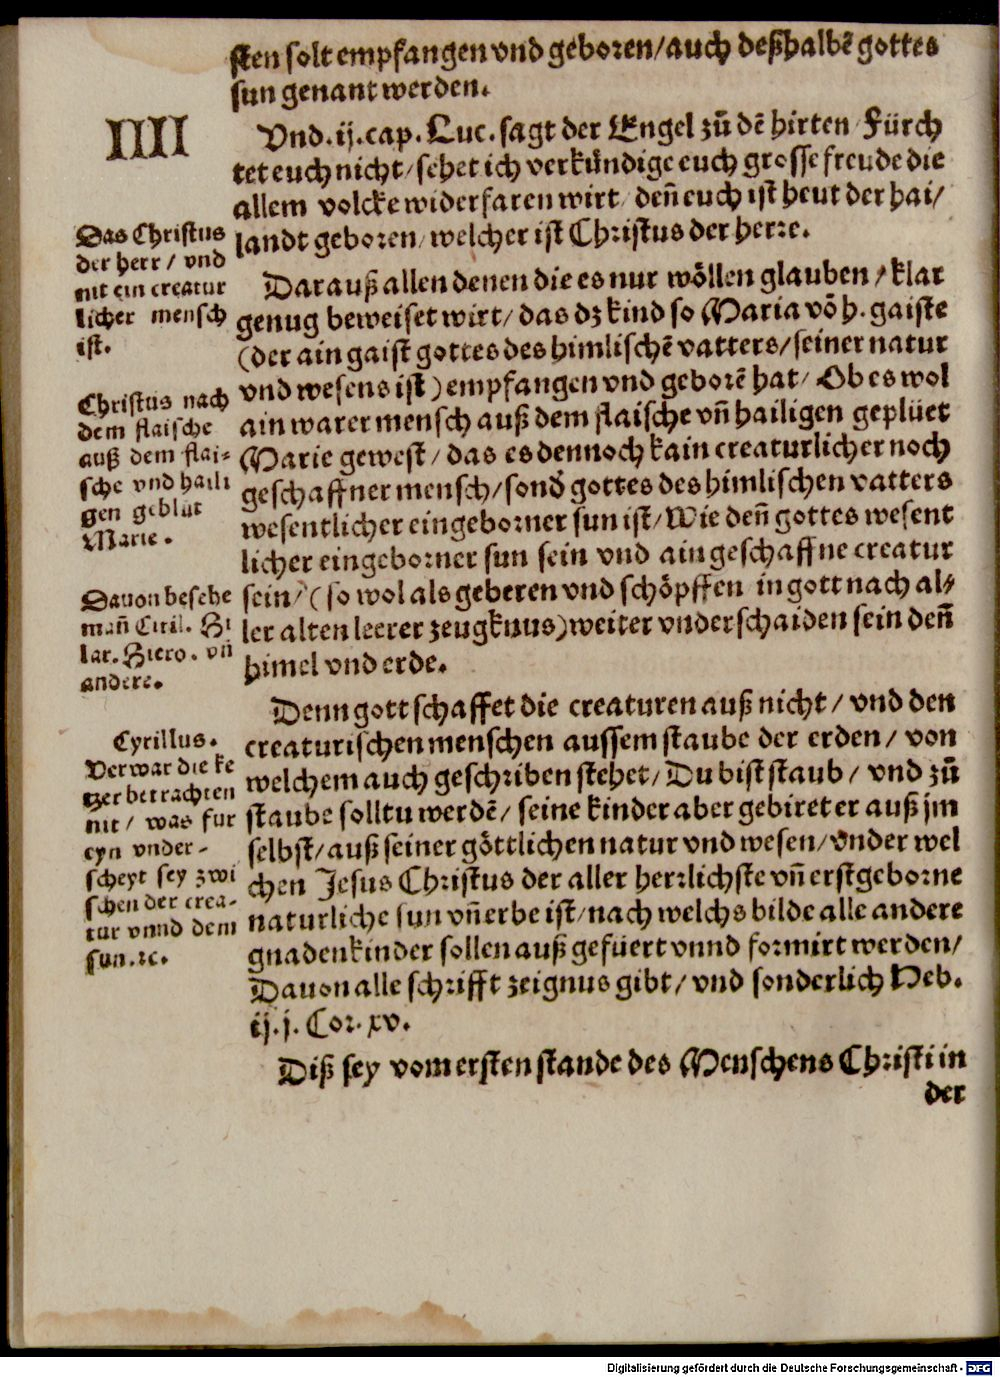 sten solt empfangen vnd geboren/auch deßhalbē gottes
sun genant werden.
IIII
Vnd.ij.cap.Luc.sagt der Engel zū dē hirten/Fürch
tet euch nicht/sehet ich verkündige euch grosse freude die
allem volcke widerfaren wirt/deñ euch ist heut der hai/
landt geboren/welcher ist Christus der herre.
Das Christus
der herr/vnd
nit ein creatur
licher mensch
ist.
Darauß allen denen die es nur wöllen glauben/klar
genug beweiset wirt/das dz kind so Maria vō h. gaiste
(der ain gaist gottes des himlischē vatters/seiner natur
vnd wesens ist) empfangen vnd geborē hat/Ob es wol
ain warer mensch auß dem flaische vñ hailigen geplüet
Marie gewest/das es dennoch kain creaturlicher noch
geschaffner mensch/sond̄ gottes des himlischen vatters
wesentlicher eingeborner sun ist/Wie deñ gottes wesent
licher eingeborner sun sein vnd ain geschaffne creatur
sein/(so wol als geberen vnd schöpffen in gott nach al/
ler alten leerer zeugknus)weiter vnderschaiden sein deñ
himel vnd erde.
Christus nach
dem flaische
auß dem flai-
sche vnd haili
gen geblüt
Marie.
Dauon besehe
mañ Ciril. Hi
lar. Hiero. vñ
andere.
Denn gott schaffet die creaturen auß nicht/vnd den
creaturischen menschen aussem staube der erden/von
welchem auch geschriben stehet/Du bist staub/vnd zū
staube soll tu werdē/seine kinder aber gebiret er auß jm
selbst/auß seiner göttlichen natur vnd wesen/vnder wel
chen Jesus Christus der aller herrlichste vñ erstgeborne
naturliche sun vñ erbe ist/nach welchs bilde alle andere
gnadenkinder sollen auß gefüert vnnd formirt werden/
Dauon alle schrifft zeignus gibt/vnd sonderlich Heb.
ij.j. Cor. xv.
Cyrillus.
Verwar die ke
tzer betrachten
nit/was für
eyn vnder-
scheyt sey zwi
schen der crea-
tur vnnd dem
sun.ꝛc.
Diß sey vom ersten stande des Menschens Christi in
der
Digitalisierung gefördert durch die Deutsche Forschungsgemeinschaft - DFG